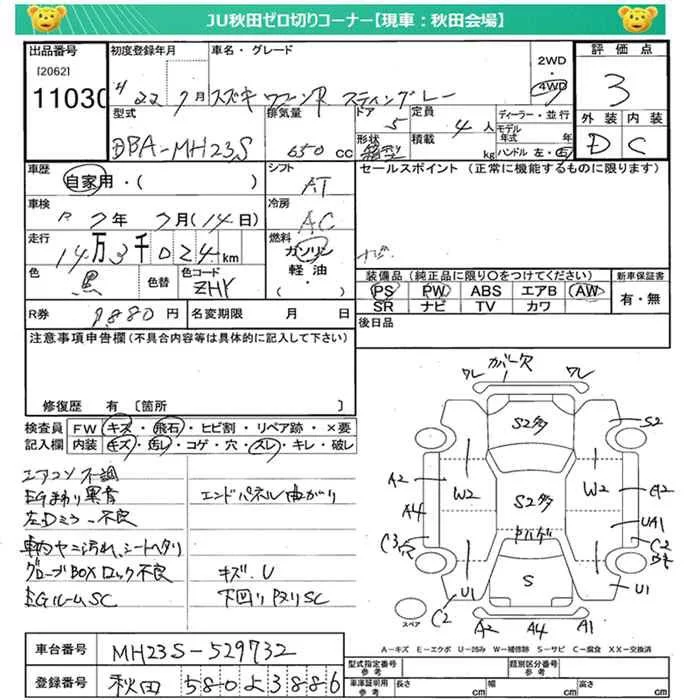 JU秋田ゼロ切りコーナー【現車：秋田会場】
出品番号
[2062]
11030
初度登録年月
車名・グレード
22 7月 スズキ ワゴンR スティングレー
2WD
・
4WD
評価点
3
外装 内装
D C
型式
DBA-MH23S
排気量
650 cc
ドア
5
形状
箱型
定員
4 人
積載
kg
ディーラー・並行
モデル年式 年
ハンドル 左・右
車歴
自家用・( )
シフト
AT
セールスポイント（正常に機能するものに限ります）
ナビ
車検
R 7年 7月(14日)
冷房
AC
走行
14万3千024km
燃料
ガソリン
軽油
( )
色
黒
色替
色コード
ZHY
装備品（純正品に限り○をつけてください）
PS PW ABS エアB AW
SR ナビ TV カワ
新車保証書
有・無
R券 9.880円
名変期限 月 日
後日品
注意事項申告欄(不具合内容等は具体的に記入して下さい)
修復歴 有 〔箇所 〕
検査員記入欄
FW キズ・飛石・ヒビ割・リペア跡・×要
内装 キズ・汚レ・コゲ・穴・スレ・キレ・破レ
エアコン不調
EGまわり異音 エンドパネル曲がり
左Dミラー不良
車内ヤニ汚れ、シートヘタリ
グローブBOXロック不良 キズ.U
EGルームSC 下回りサビSC
カバー欠
ワレ ワレ
S2多 S2
A2 W2 W2 A2
A4 S2多 UA1
ヤハゲ
C3穴 C2
S
U1 U1
C2 A2 A4 A1
スペア
A-キズ E-エクボ U-凹み W-補修跡 S-サビ C-腐食 XX-交換済
車台番号 MH23S-529732
登録番号 秋田 580よ3886
型式指定番号 参考
類別区分番号 参考
車庫証明用 参考 長さ cm 幅 cm 高さ cm